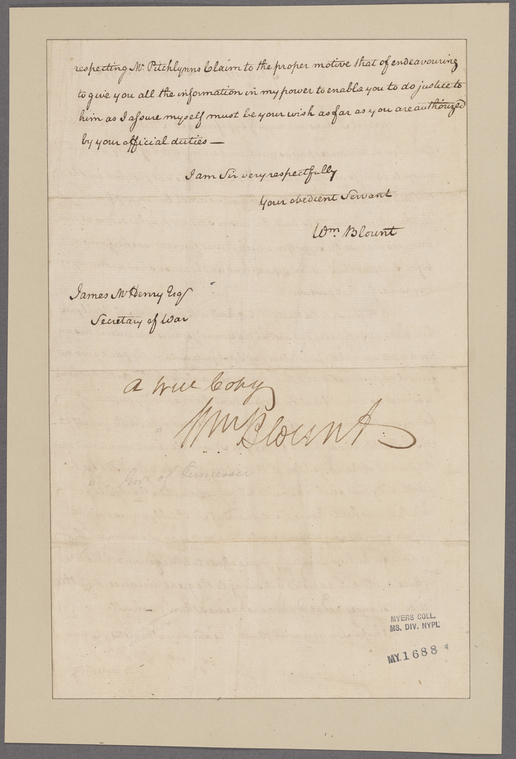 respecting Mr. Pitchlynns Claim to the proper motive that of endeavouring
to give you all the information in my power to enable you to do justice to
him as I assure myself must be your wish as far as you are authorized
by your official duties —
I am Sir very respectfully
Your obedient Servant
Wm. Blount
James McHenry Esqr
Secretary of War
A true Copy
Wm Blount
of Tennessee
MYERS COLL.
MS. DIV. NYPL
MY. 1688